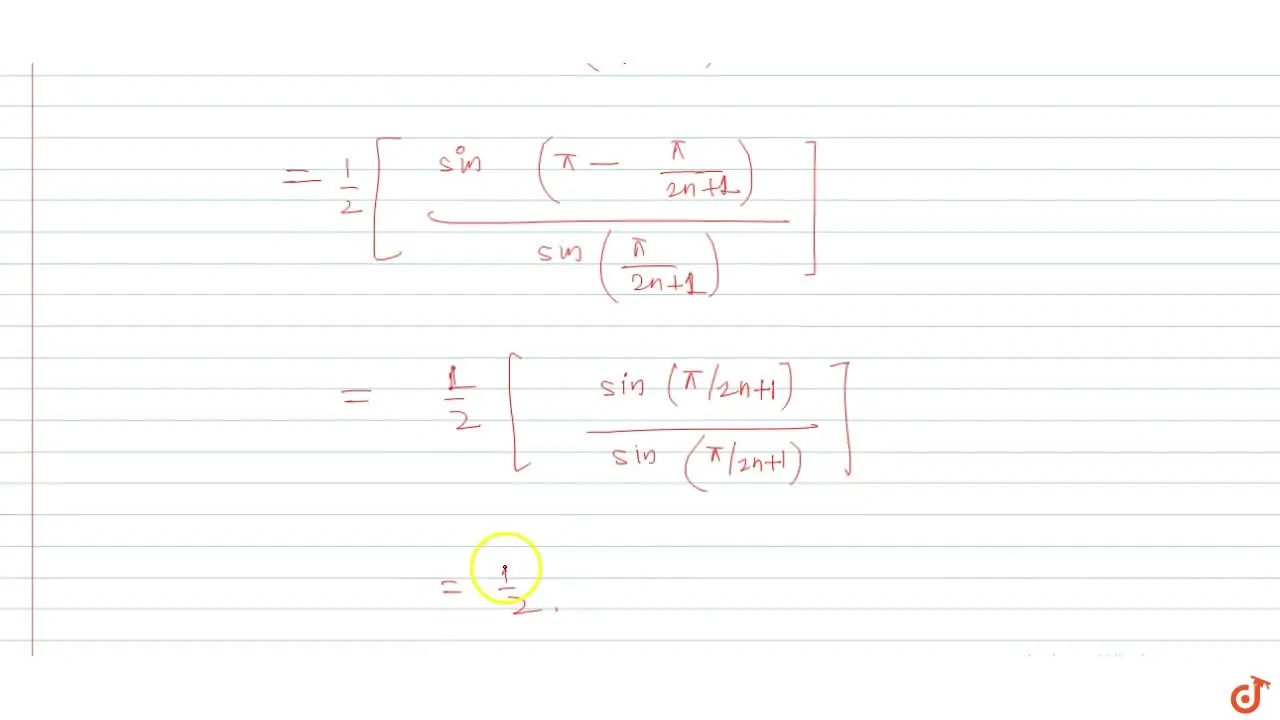 = 1/2 [ sin (π − π/2n+1) / sin (π/2n+1) ]
= 1/2 [ sin (π/2n+1) / sin (π/2n+1) ]
= 1/2 .